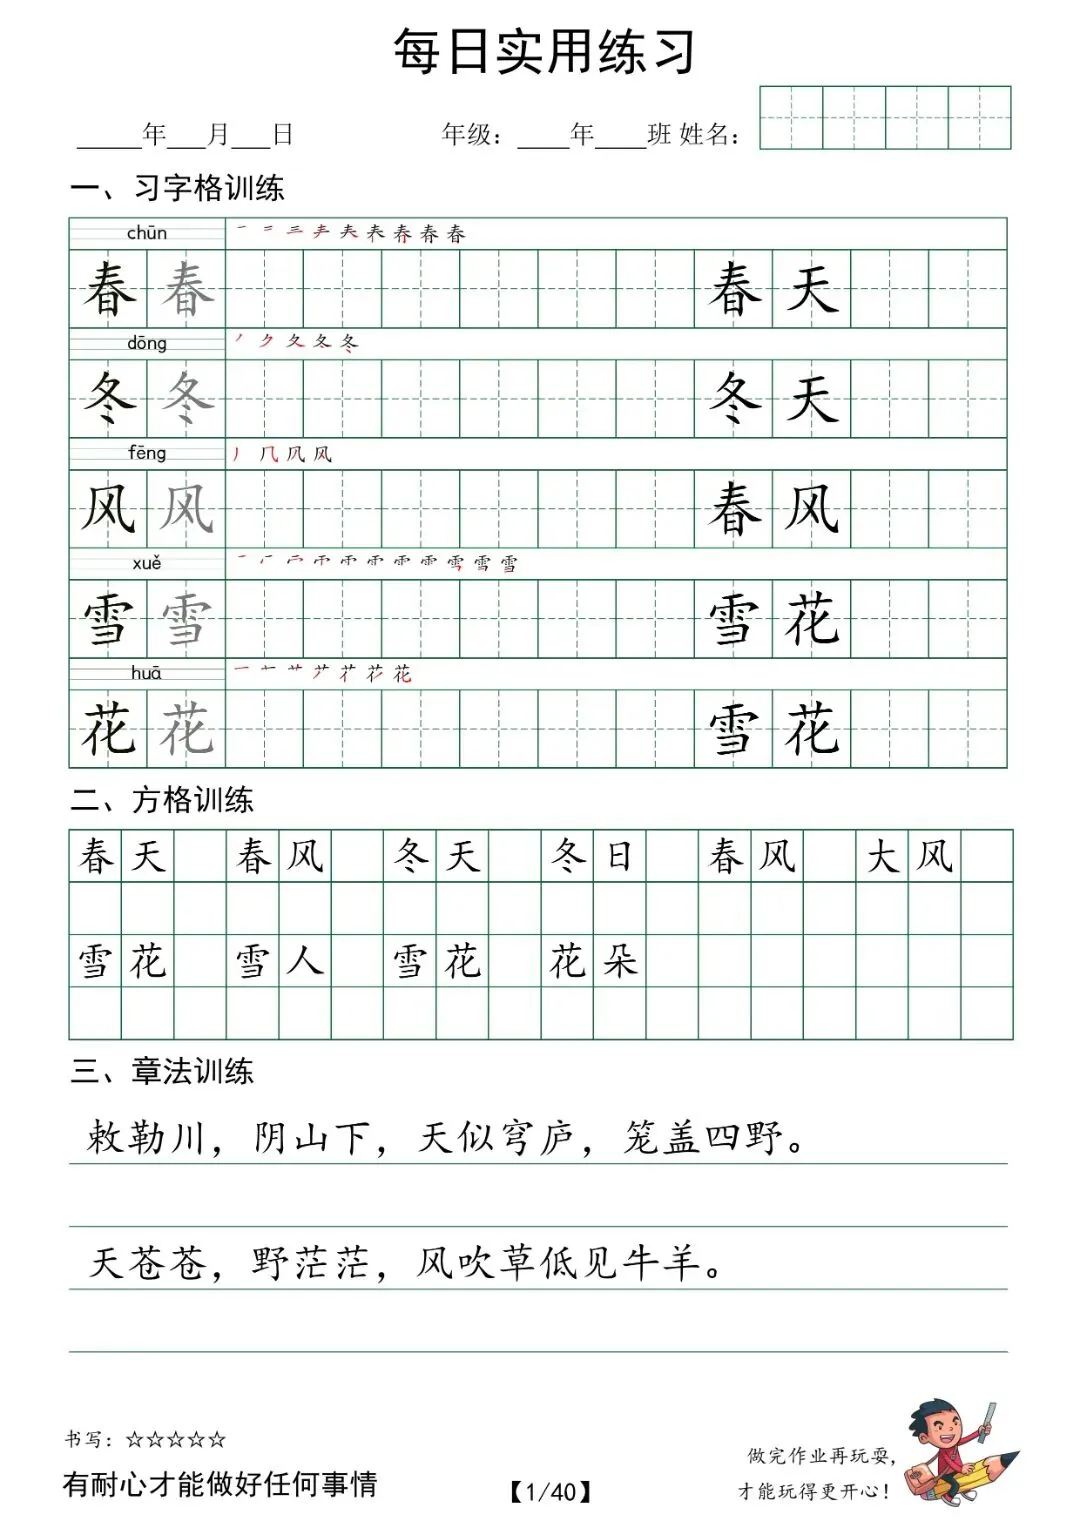 每日实用练习
_____年___月___日 年级：____年____班 姓名：
一、习字格训练
chūn
春 春 春 天
dōng
冬 冬 冬 天
fēng
风 风 春 风
xuě
雪 雪 雪 花
huā
花 花 雪 花
二、方格训练
春 天 春 风 冬 天 冬 日 春 风 大 风
雪 花 雪 人 雪 花 花 朵
三、章法训练
敕勒川，阴山下，天似穹庐，笼盖四野。
天苍苍，野茫茫，风吹草低见牛羊。
书写：☆☆☆☆☆
做完作业再玩耍，
有耐心才能做好任何事情 【1/40】 才能玩得更开心！